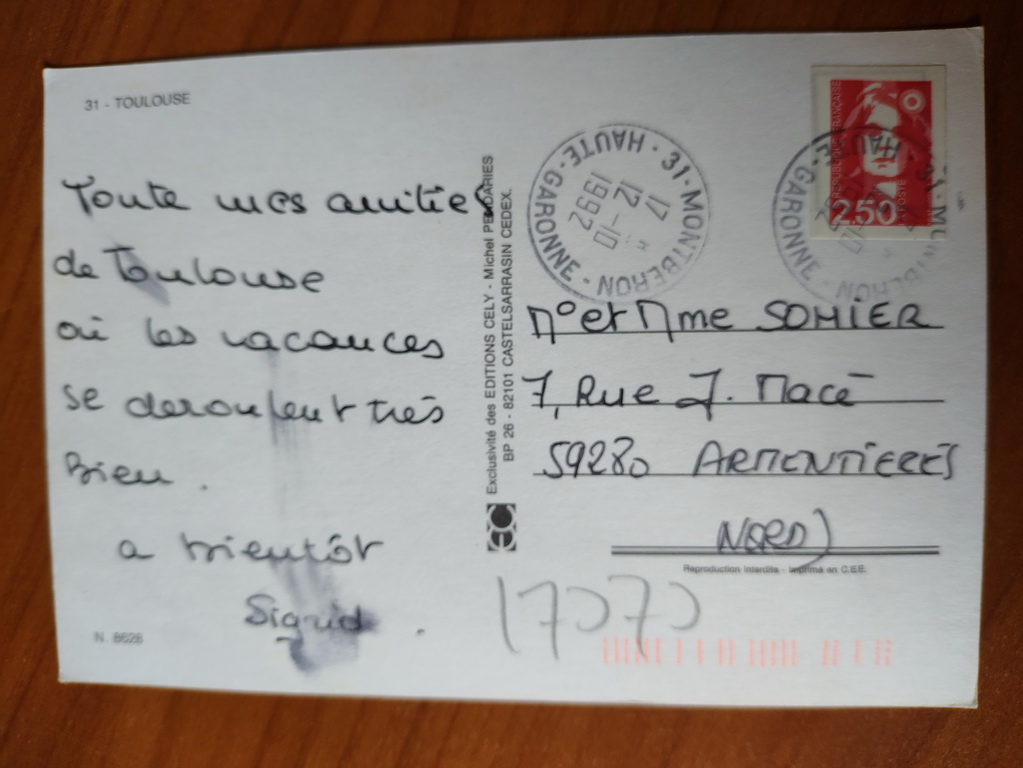 31 - TOULOUSE
Toute mes amitiés
de Toulouse
où les vacances
se deroulent très
Bien.
a bientôt
Sigrid.
N. 8628
Exclusivité des EDITIONS CELY - Michel PENDARIES
BP 26 - 82101 CASTELSARRASIN CEDEX.
31-MONTBERON
HAUTE-GARONNE
17 H
12 -10
1992
RÉPUBLIQUE FRANÇAISE
2,50
POSTE
31-MONTBERON
HAUTE-GARONNE
Mr et Mme SOHIER
7, Rue J. Macé
59280 ARMENTIERES
(NORD)
Reproduction Interdite - Imprimé en C.E.E.